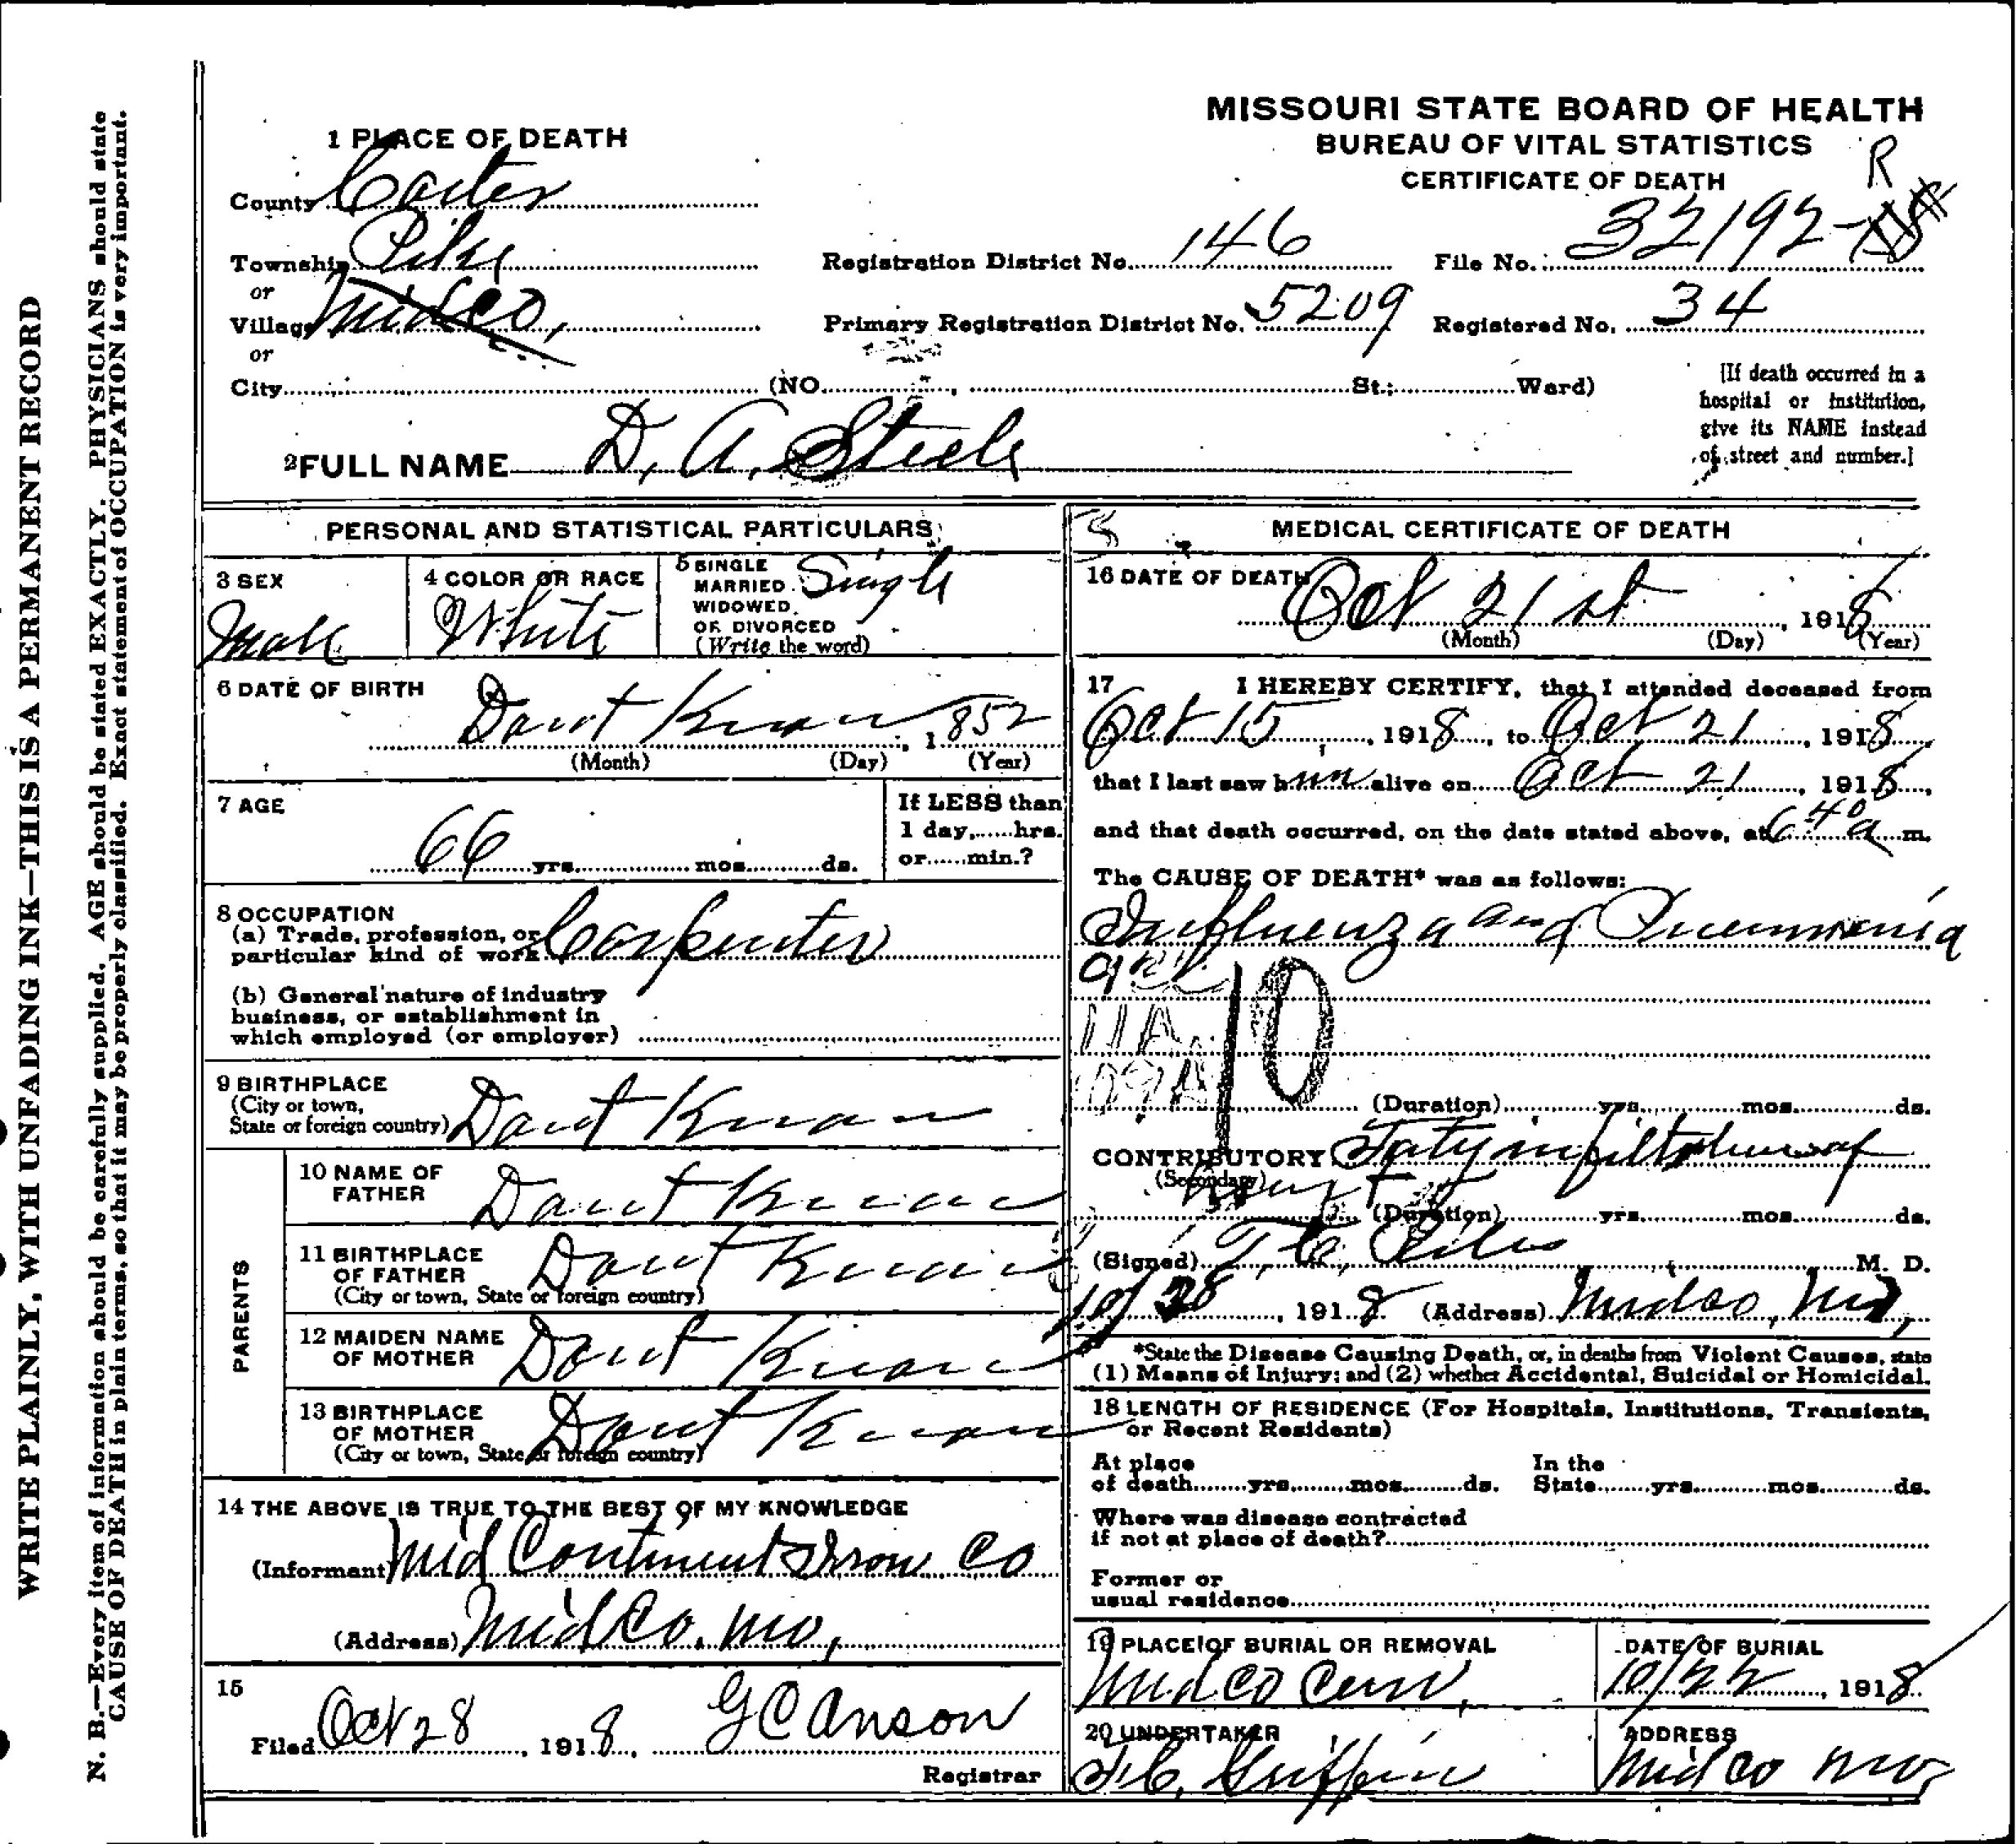 WRITE PLAINLY, WITH UNFADING INK—THIS IS A PERMANENT RECORD
N. B.—Every item of information should be carefully supplied. AGE should be stated EXACTLY. PHYSICIANS should state
CAUSE OF DEATH in plain terms, so that it may be properly classified. Exact statement of OCCUPATION is very important.
MISSOURI STATE BOARD OF HEALTH
BUREAU OF VITAL STATISTICS
CERTIFICATE OF DEATH
R
1 PLACE OF DEATH
County Carter
Township Pike
or
Village Midco,
or
City (NO. , St.; Ward)
Registration District No. 146
File No. 32192
Primary Registration District No. 5209
Registered No. 34
[If death occurred in a
hospital or institution,
give its NAME instead
of street and number.]
2 FULL NAME D. A. Steele
PERSONAL AND STATISTICAL PARTICULARS
3 SEX
Male
4 COLOR OR RACE
White
5 SINGLE
MARRIED
WIDOWED
OR DIVORCED
(Write the word)
Single
6 DATE OF BIRTH
Dont Know, 1852
(Month) (Day) (Year)
7 AGE
66 yrs. mos. ds.
If LESS than
1 day, hrs.
or min.?
8 OCCUPATION
(a) Trade, profession, or
particular kind of work Carpenter
(b) General nature of industry
business, or establishment in
which employed (or employer)
9 BIRTHPLACE
(City or town,
State or foreign country) Dont Know
PARENTS
10 NAME OF
FATHER Dont Know
11 BIRTHPLACE
OF FATHER
(City or town, State or foreign country) Dont Know
12 MAIDEN NAME
OF MOTHER Dont Know
13 BIRTHPLACE
OF MOTHER
(City or town, State or foreign country) Dont Know
14 THE ABOVE IS TRUE TO THE BEST OF MY KNOWLEDGE
(Informant) Mid Continent Iron Co
(Address) MidCo. Mo,
15
Filed Oct 28, 1918, G C Anson
Registrar
MEDICAL CERTIFICATE OF DEATH
16 DATE OF DEATH
Oct 21 st, 1918
(Month) (Day) (Year)
17 I HEREBY CERTIFY, that I attended deceased from
Oct 15, 1918, to Oct 21, 1918
that I last saw him alive on Oct 21, 1918,
and that death occurred, on the date stated above, at 6 40 a m.
The CAUSE OF DEATH* was as follows:
Influenza and Pneumonia
11A
10
(Duration) yrs. mos. ds.
CONTRIBUTORY Faty infiltration of
(Secondary) heart
(Duration) yrs. mos. ds.
(Signed) T. C. M. D.
10/28, 1918 (Address) Midco, Mo,
*State the Disease Causing Death, or, in deaths from Violent Causes, state
(1) Means of Injury; and (2) whether Accidental, Suicidal or Homicidal.
18 LENGTH OF RESIDENCE (For Hospitals, Institutions, Transients,
or Recent Residents)
At place
of death yrs. mos. ds.
In the
State yrs. mos. ds.
Where was disease contracted
if not at place of death?
Former or
usual residence
19 PLACE OF BURIAL OR REMOVAL
Midco Cem,
DATE OF BURIAL
10/22, 1918
20 UNDERTAKER
Griffin
ADDRESS
Midco Mo,